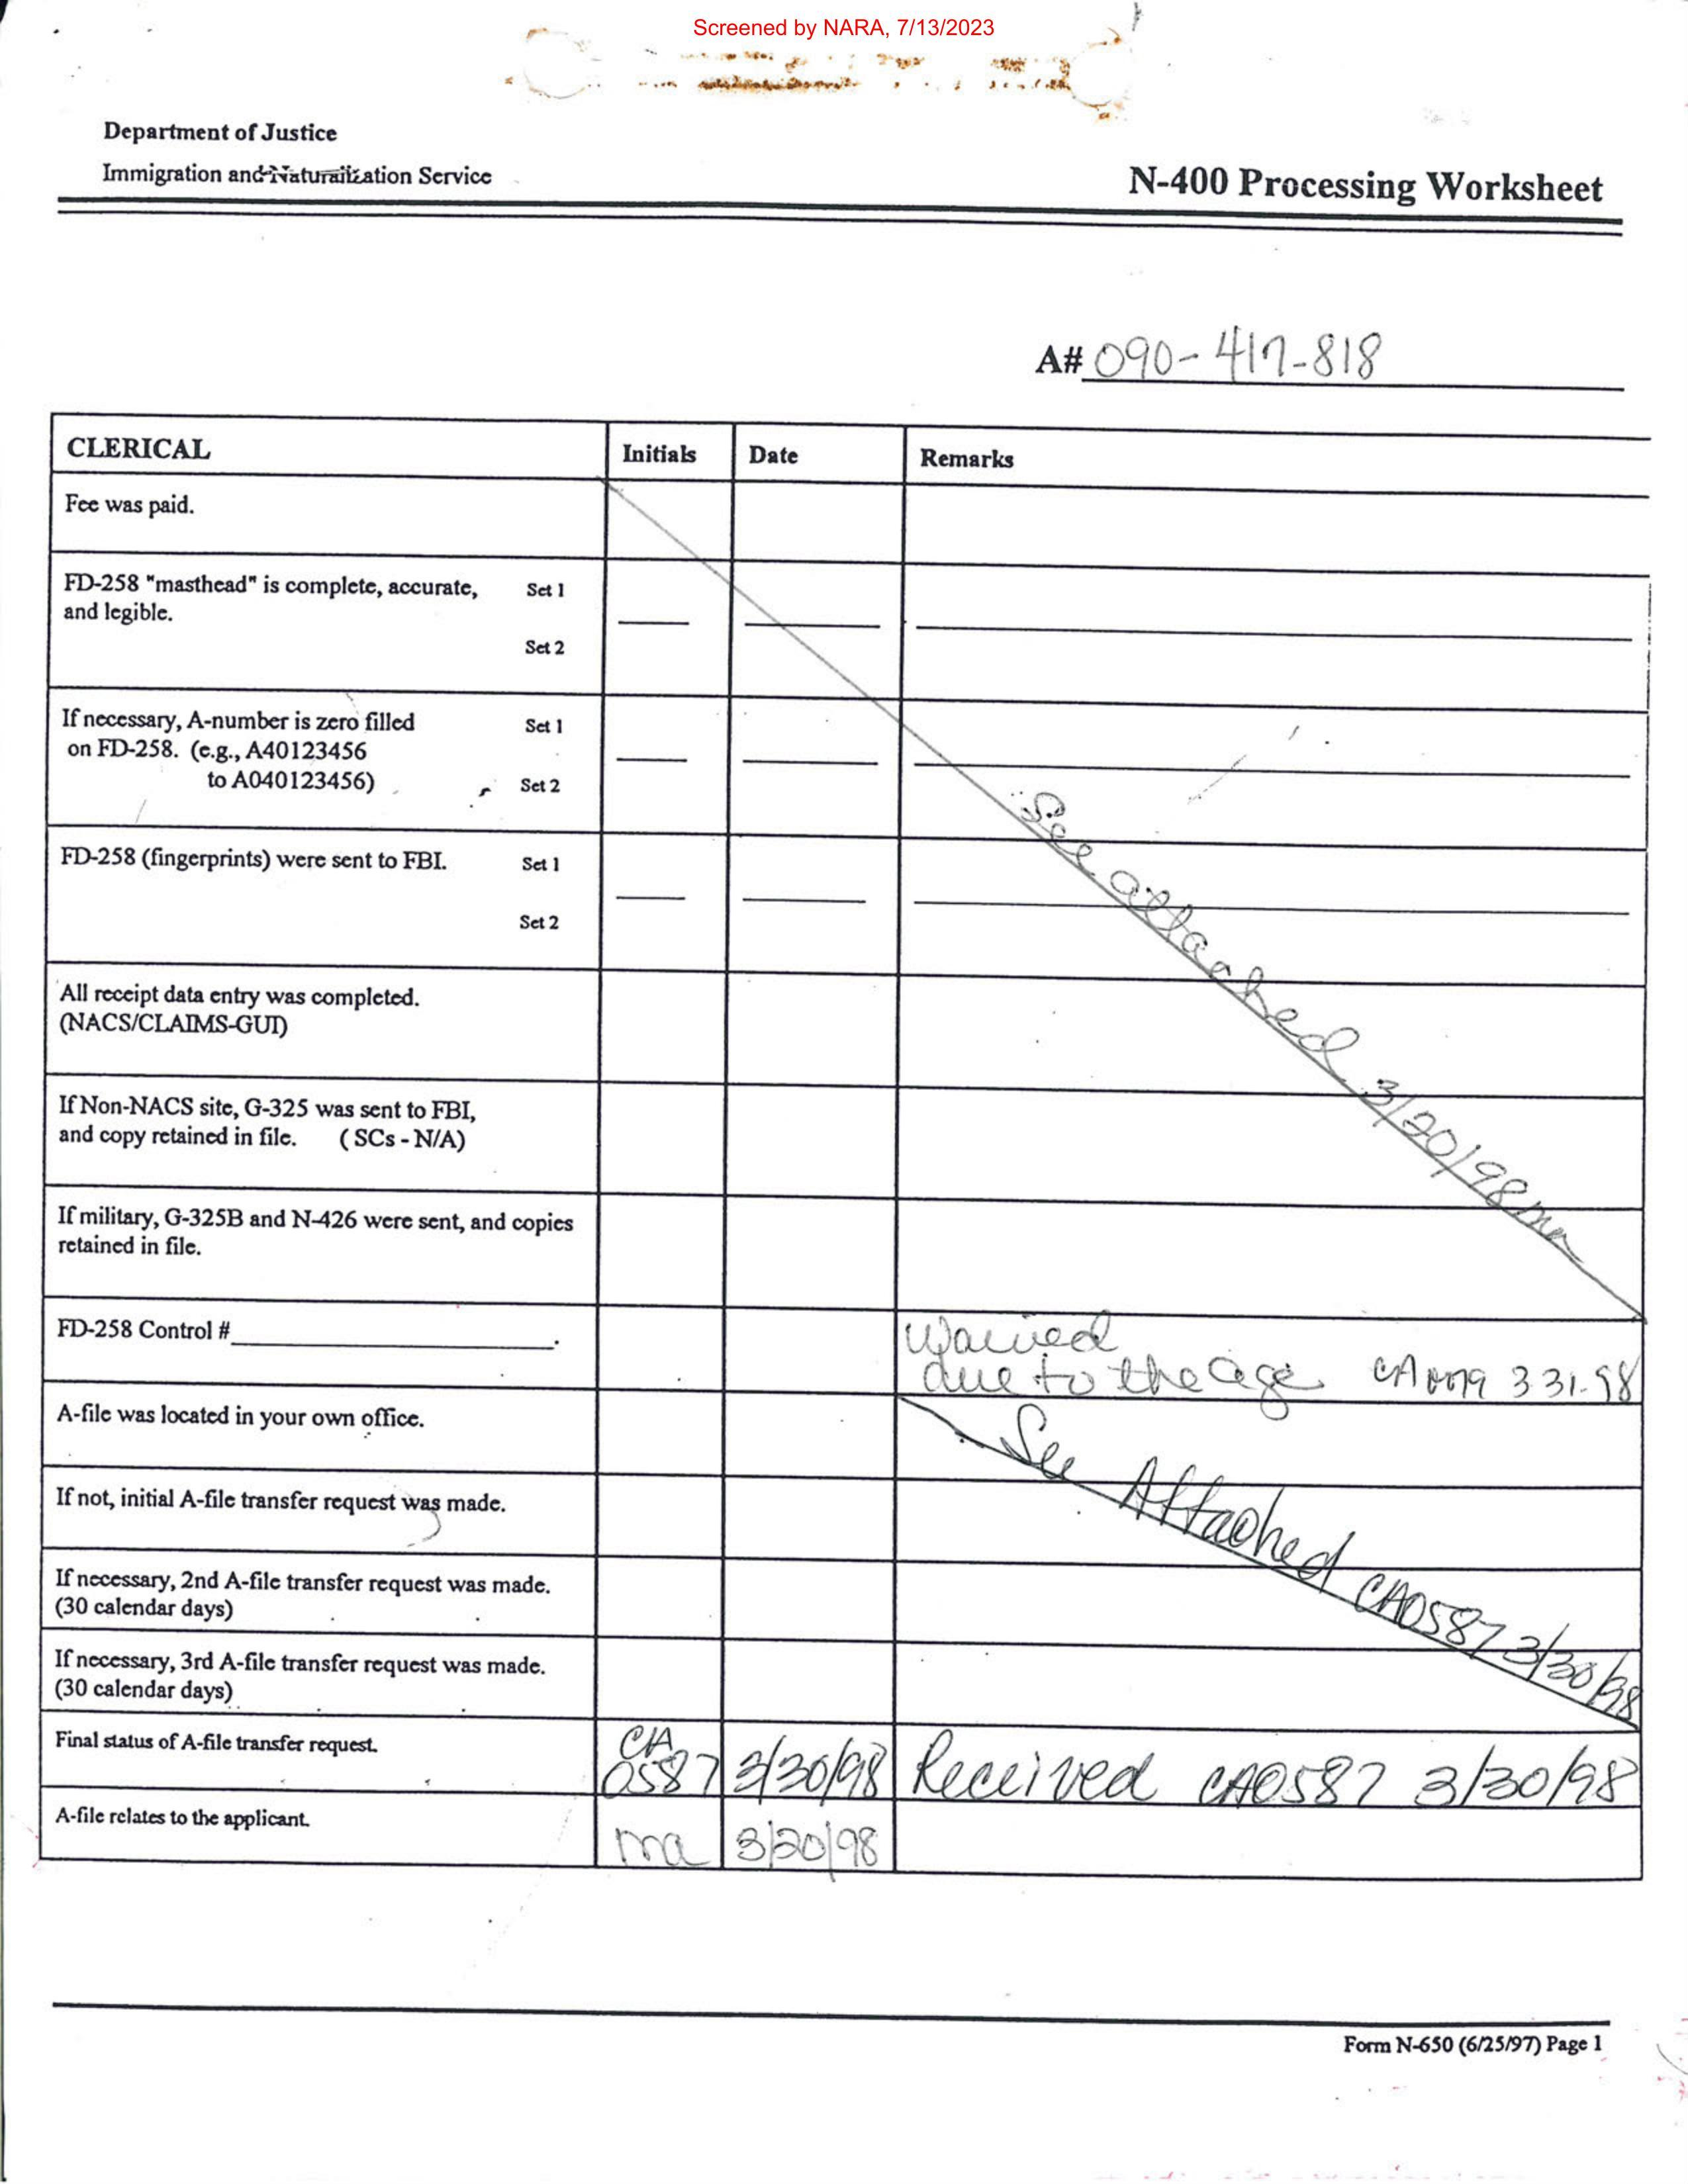 Screened by NARA, 7/13/2023
Department of Justice
Immigration and Naturalization Service
N-400 Processing Worksheet
A# 090-417-818
CLERICAL Initials Date Remarks
Fee was paid.
FD-258 "masthead" is complete, accurate, Set 1
and legible.
Set 2
If necessary, A-number is zero filled Set 1
on FD-258. (e.g., A40123456
to A040123456) Set 2
See attached 3/20/98 ma
FD-258 (fingerprints) were sent to FBI. Set 1
Set 2
All receipt data entry was completed.
(NACS/CLAIMS-GUI)
If Non-NACS site, G-325 was sent to FBI,
and copy retained in file. ( SCs - N/A)
If military, G-325B and N-426 were sent, and copies
retained in file.
FD-258 Control # .
Waived
due to the age 3.31.98
A-file was located in your own office.
See Attached CA0587 3/30/98
If not, initial A-file transfer request was made.
If necessary, 2nd A-file transfer request was made.
(30 calendar days)
If necessary, 3rd A-file transfer request was made.
(30 calendar days)
Final status of A-file transfer request. CA 0587 3/30/98 Received CA0587 3/30/98
A-file relates to the applicant. ma 3/20/98
Form N-650 (6/25/97) Page 1